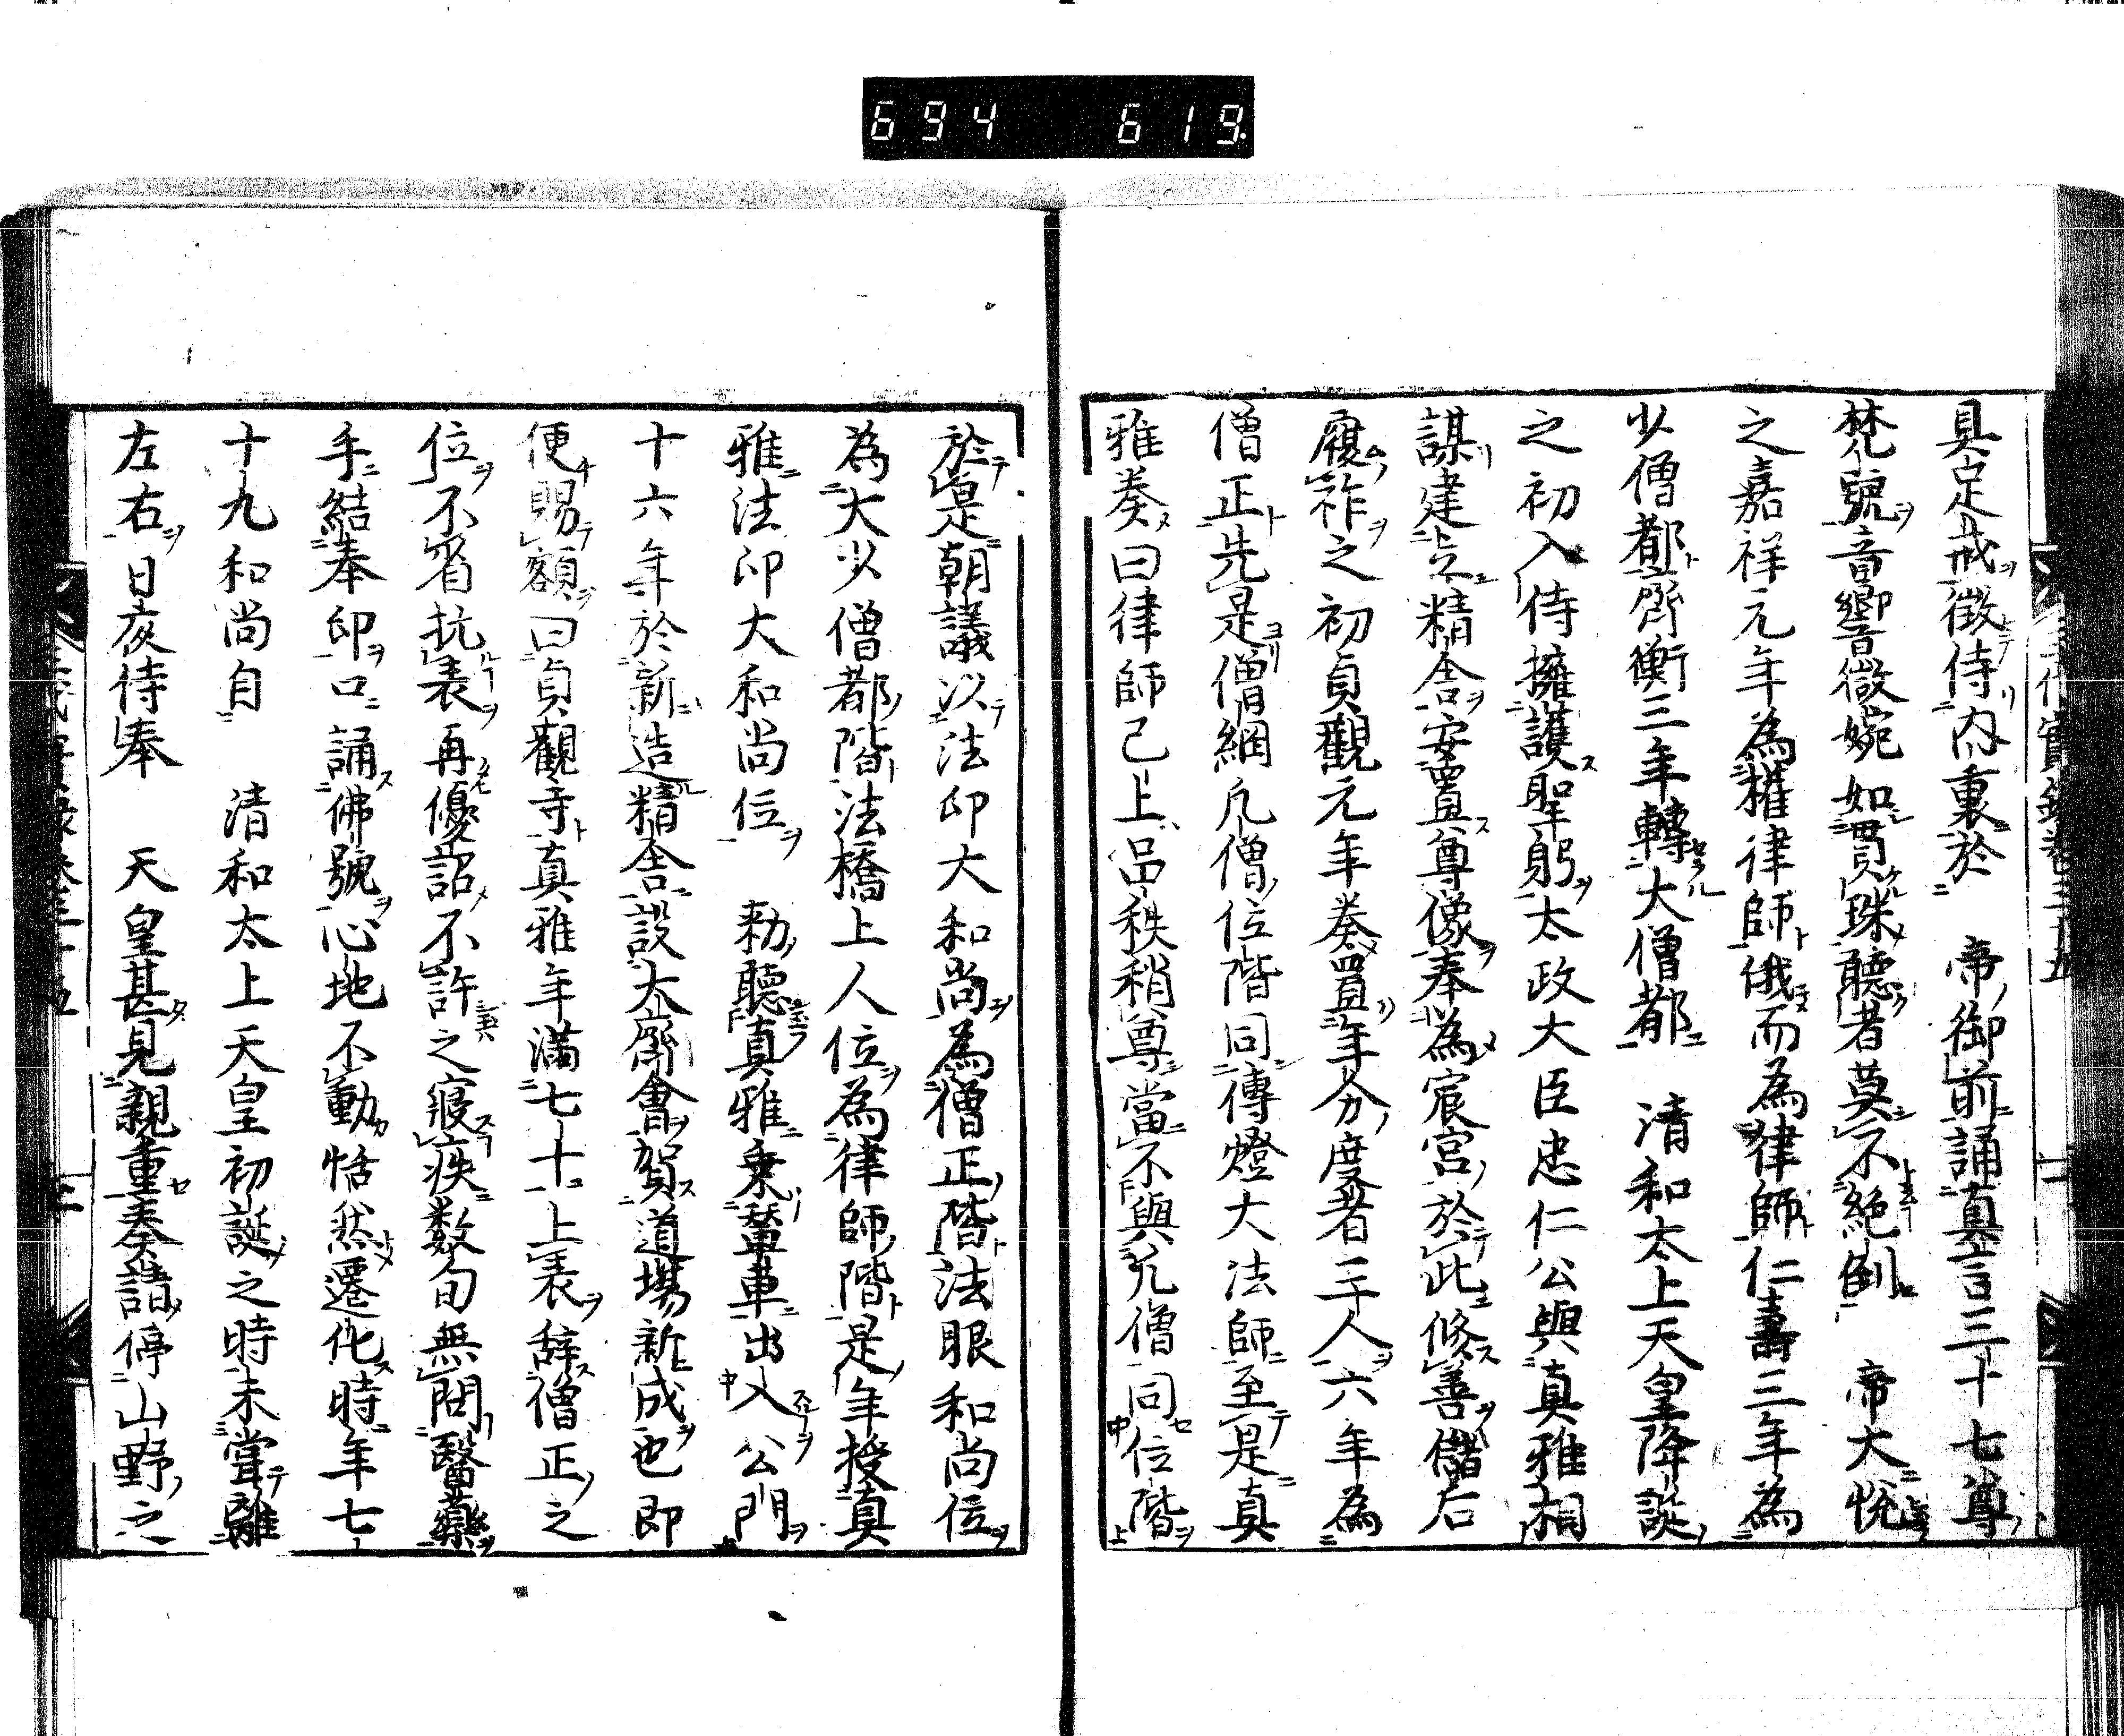 694 619
具足戒徵侍内裏於 帝御前誦真言三十七尊
梵號音響微婉如貫珠聽者莫不絶倒 帝大悦
之嘉祥元年為權律師俄而為律師仁壽三年為
少僧都齊衡三年轉大僧都 清和太上天皇降誕
之初入侍擁護聖躬太政大臣忠仁公與真雅相
謀建立精舍安置尊像奉為宸宮於此修善儲后
履祚之初貞觀元年奏置年分度者三人六年為
僧正先是僧綱凡僧位階同傳燈大法師至是真
雅奏曰律師已上品秩稍尊當不與凡僧同位階
於是朝議以法印大和尚為僧正階法眼和尚位
為大少僧都階法橋上人位為律師階是年授真
雅法印大和尚位 勅聽真雅乗輦車出入公門
十六年於新造精舍設大齋會賀道場新成也即
便賜額曰貞觀寺真雅年滿七十上表辞僧正之
位不省抗表再優詔不許之寢疾数旬無問醫藥
手結奉印口誦佛號心地不動恬然遷化時年七
十九和尚自 清和太上天皇初誕之時未嘗離
左右日夜侍奉 天皇甚見親重奏請停山野之